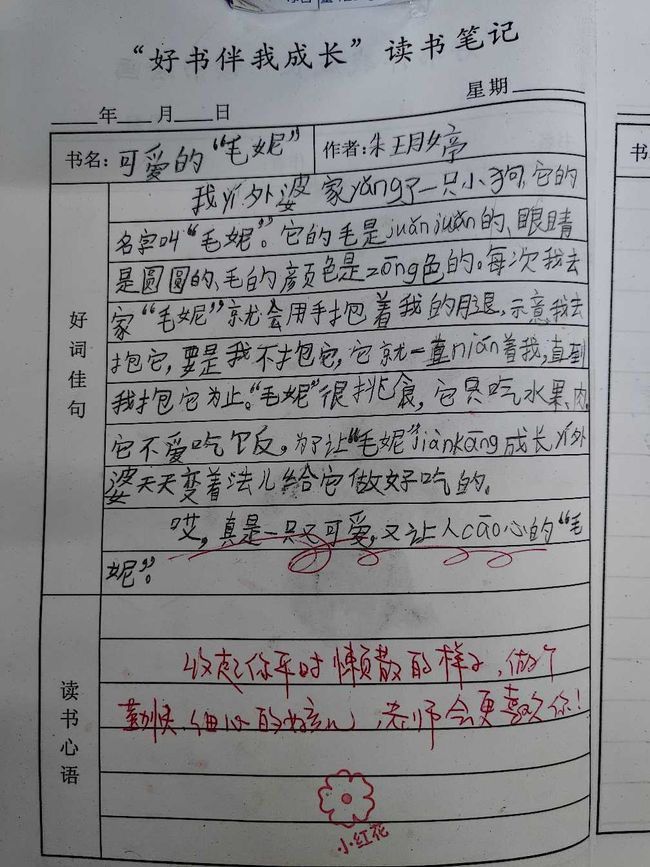 “好书伴我成长”读书笔记
年 月 日 星期
书名：可爱的“毛妮” 作者：朱玥婷
好词佳句
我yí外婆家yǎng了一只小狗，它的
名字叫“毛妮”。它的毛是juǎnjuǎn的、眼睛
是圆圆的、毛的颜色是zōng色的。每次我去
家“毛妮”京尤会用手抱着我的腿，示意我去
抱它，要是我不抱它，它就一直nián着我，直到
我抱它为止。“毛妮”很挑食，它只吃水果、肉，
它不爱吃饭，为了让“毛妮”jiànkāng成长yí外
婆天天变着法儿给它做好吃的。
哎，真是一只又可爱，又让人cāo心的“毛
妮”。
读书心语
收起你平时懒散的样子，做个
勤快、细心的好孩儿，老师会更喜欢你！
小红花